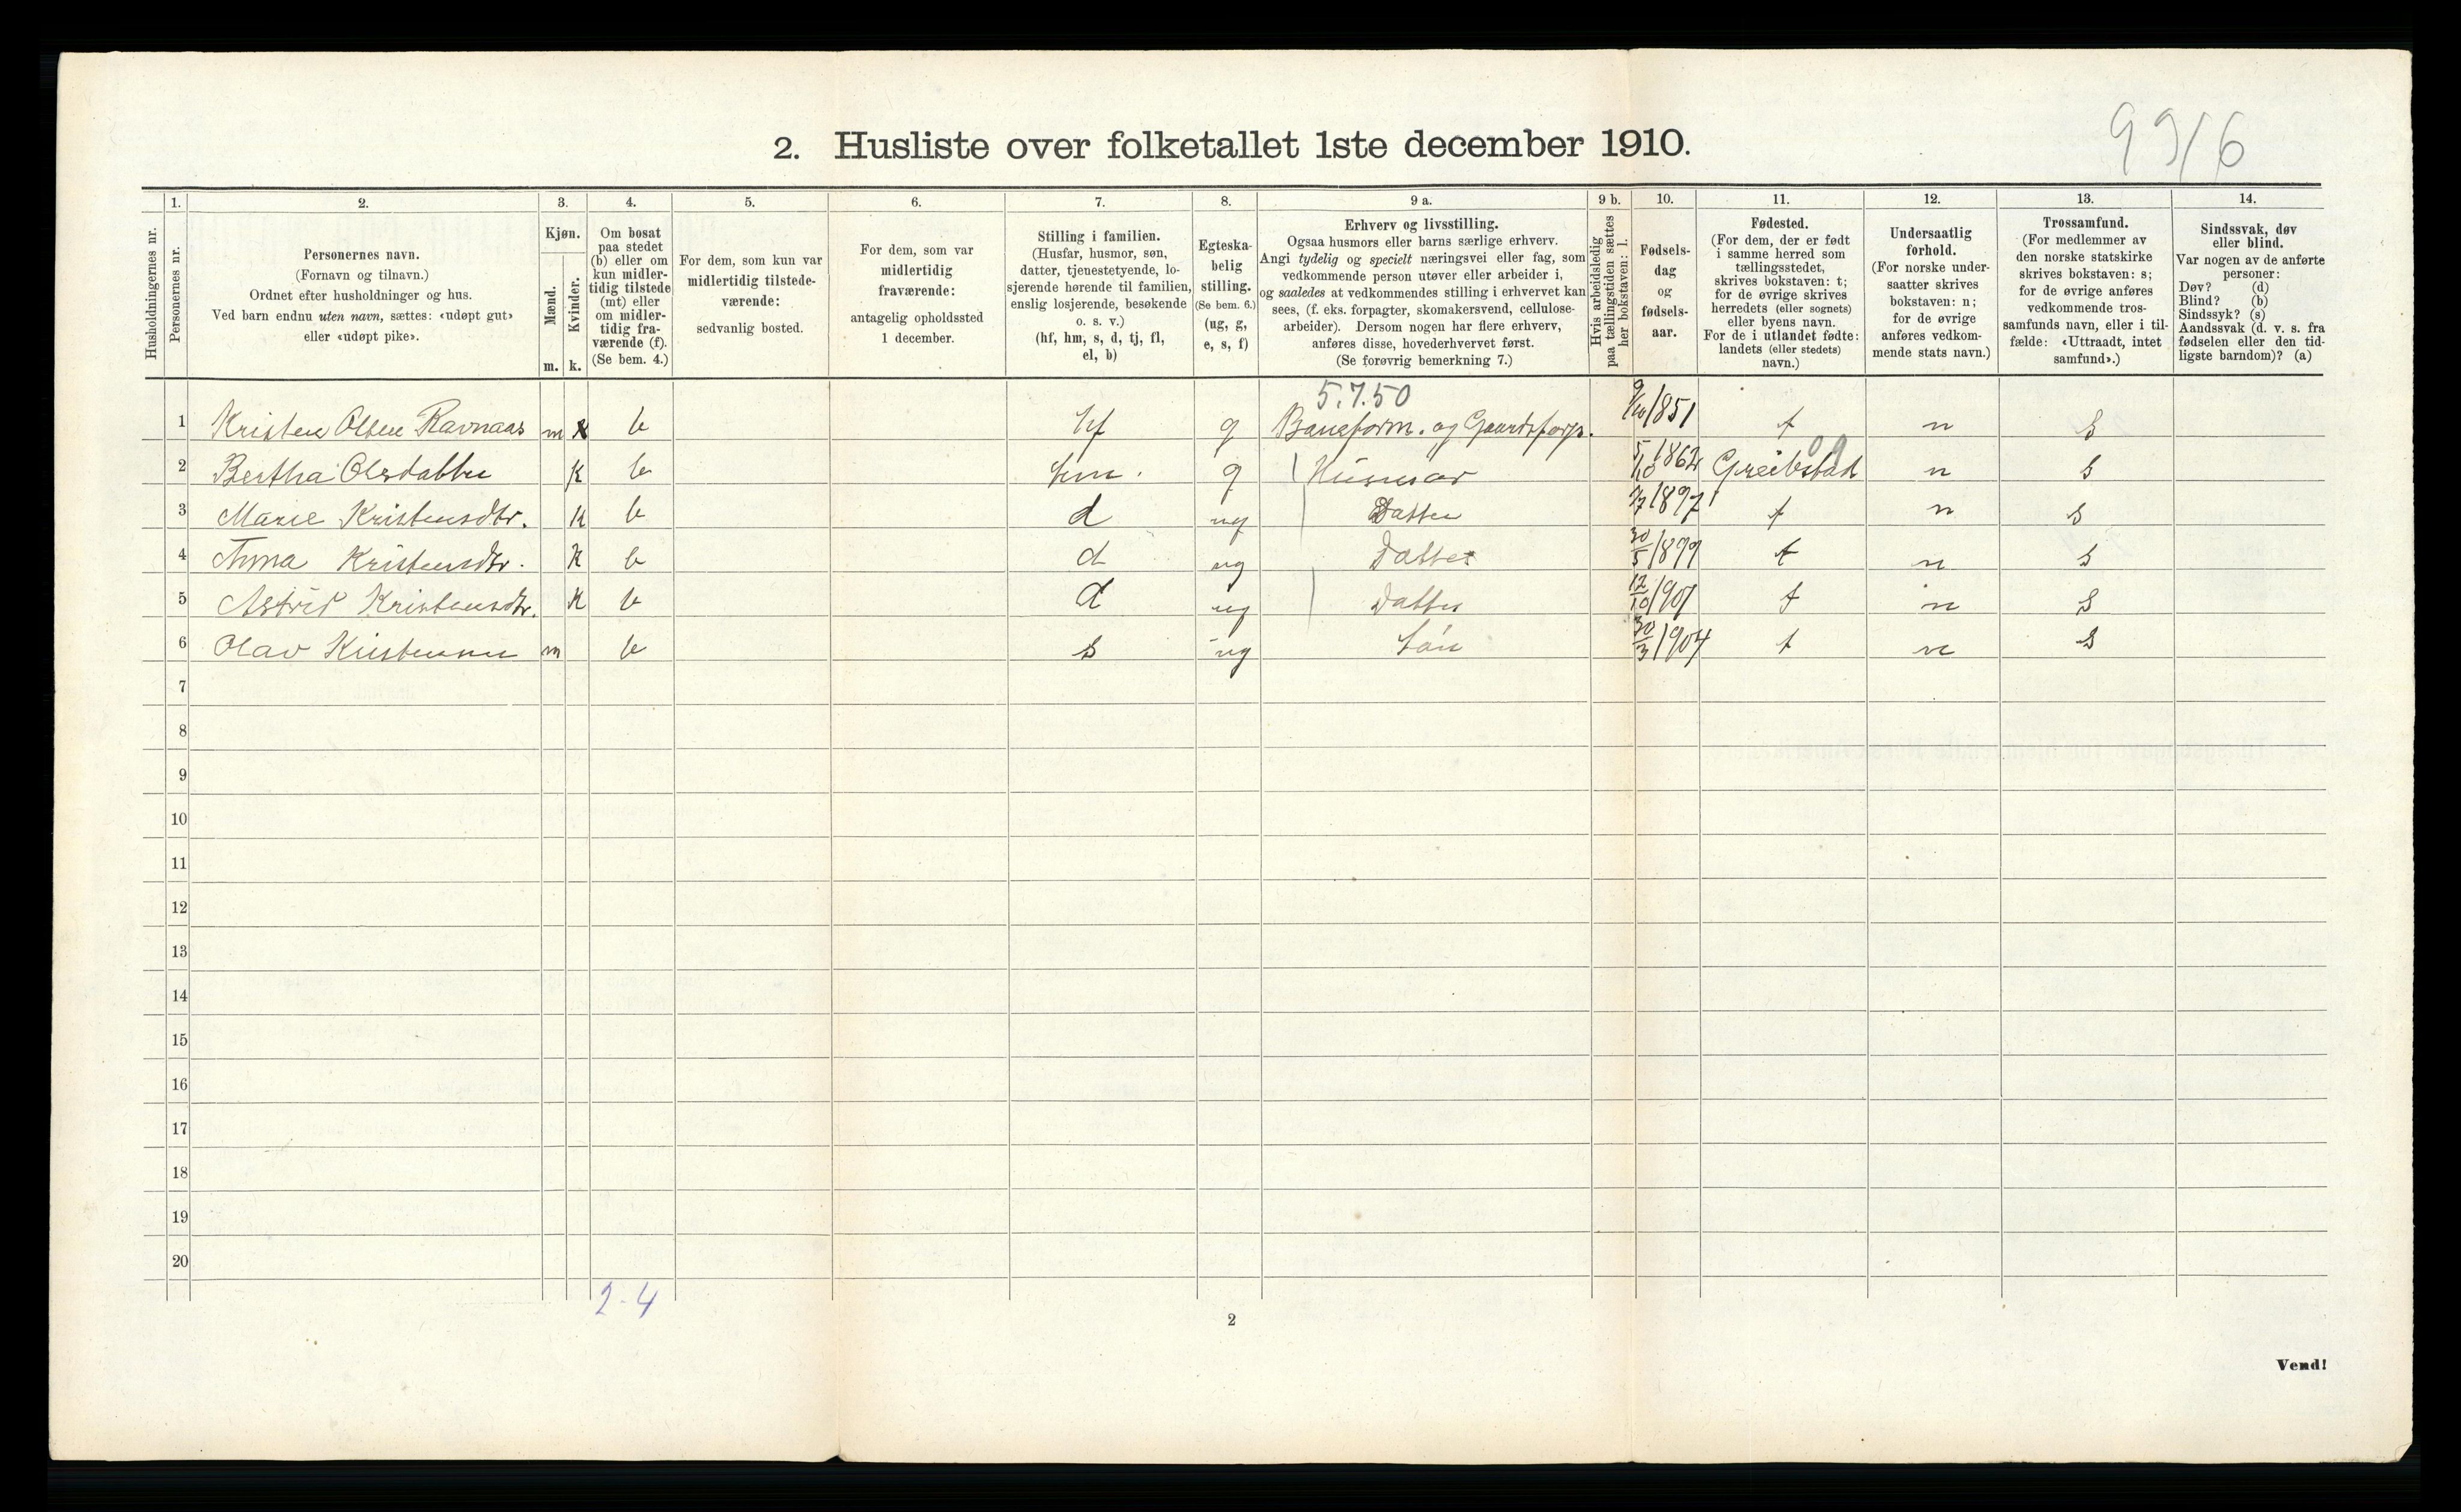 9916
2. Husliste over folketallet 1ste december 1910.
Husholdningernes nr.
1. Personernes nr.
2. Personernes navn.
(Fornavn og tilnavn.)
Ordnet efter husholdninger og hus.
Ved barn endnu uten navn, sættes: «udøpt gut»
eller «udøpt pike».
3. Kjøn.
Mænd. m.
Kvinder. k.
4. Om bosat
paa stedet
(b) eller om
kun midler-
tidig tilstede
(mt) eller
om midler-
tidig fra-
værende (f).
(Se bem. 4.)
5. For dem, som kun var
midlertidig tilstede-
værende:
sedvanlig bosted.
6. For dem, som var
midlertidig
fraværende:
antagelig opholdssted
1 december.
7. Stilling i familien.
(Husfar, husmor, søn,
datter, tjenestetyende, lo-
sjerende hørende til familien,
enslig losjerende, besøkende
o. s. v.)
(hf, hm, s, d, tj, fl,
el, b)
8. Egteska-
belig
stilling.
(Se bem. 6.)
(ug, g,
e, s, f)
9 a. Erhverv og livsstilling.
Ogsaa husmors eller barns særlige erhverv.
Angi tydelig og specielt næringsvei eller fag, som
vedkommende person utøver eller arbeider i,
og saaledes at vedkommendes stilling i erhvervet kan
sees, (f. eks. forpagter, skomakersvend, cellulose-
arbeider). Dersom nogen har flere erhverv,
anføres disse, hovederhvervet først.
(Se forøvrig bemerkning 7.)
9 b. Hvis arbeidsledig
paa tællingstiden sættes
her bokstaven: l.
10. Fødsels-
dag
og
fødsels-
aar.
11. Fødested.
(For dem, der er født
i samme herred som
tællingsstedet,
skrives bokstaven: t;
for de øvrige skrives
herredets (eller sognets)
eller byens navn.
For de i utlandet fødte:
landets (eller stedets)
navn.)
12. Undersaatlig
forhold.
(For norske under-
saatter skrives
bokstaven: n;
for de øvrige
anføres vedkom-
mende stats navn.)
13. Trossamfund.
(For medlemmer av
den norske statskirke
skrives bokstaven: s;
for de øvrige anføres
vedkommende tros-
samfunds navn, eller i til-
fælde: «Uttraadt, intet
samfund».)
14. Sindssvak, døv
eller blind.
Var nogen av de anførte
personer:
Døv? (d)
Blind? (b)
Sindssyk? (s)
Aandssvak (d. v. s. fra
fødselen eller den tid-
ligste barndom)? (a)
5.7.50
1 Kristen Olsen Ravnaas m b hf g Baneform. og 1851 t n s
2 Bertha Olsdatter k b hm. g Husmor 5/10 1862 Greibstad 09 n s
3 Marie Kristensdtr. k b d ug Datter 1897 t n s
4 Anna Kristensdtr. k b d ug Datter 30/5 1899 t n s
5 Astrid Kristensdtr. k b d ug Datter 12/10 1901 t n s
6 Olav Kristensen m b s ug Søn 30/3 1904 t n s
7
8
9
10
11
12
13
14
15
16
17
18
19
20
2-4
2
Vend!